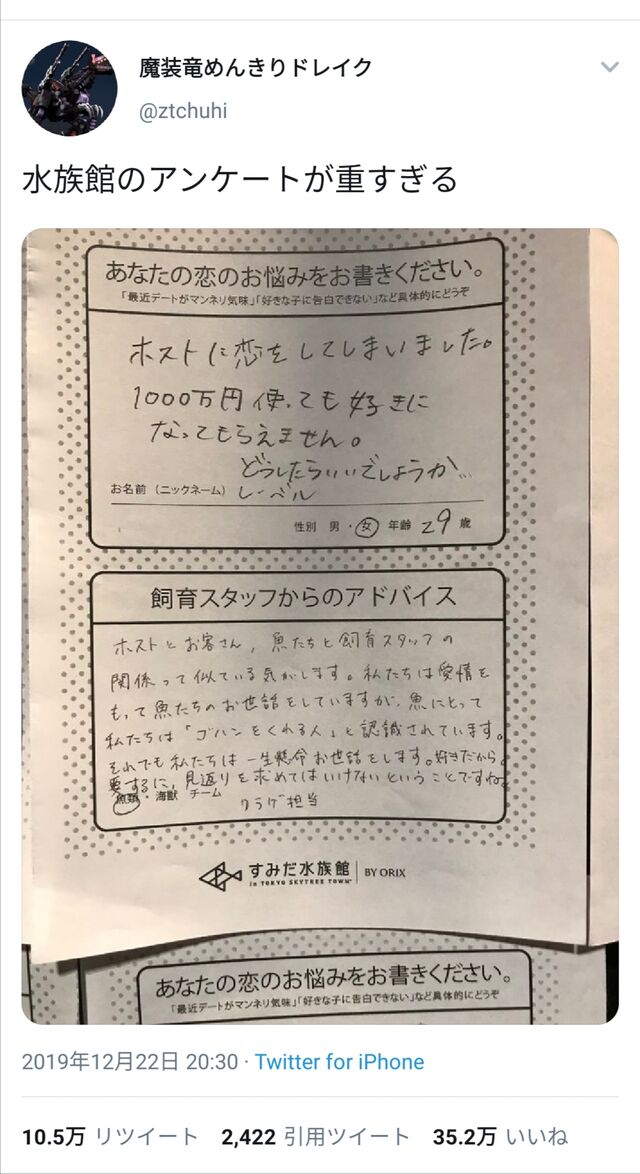 魔装竜めんきりドレイク
@ztchuhi
水族館のアンケートが重すぎる
あなたの恋のお悩みをお書きください。
「最近デートがマンネリ気味」「好きな子に告白できない」など具体的にどうぞ
ホストに恋をしてしまいました。
1000万円使っても好きに
なってもらえません。
どうしたらいいでしょうか…
お名前（ニックネーム） レーベル
性別 男・女 年齢 29 歳
飼育スタッフからのアドバイス
ホストとお客さん、魚たちと飼育スタッフの
関係って似ている気がします。私たちは愛情を
もって魚たちのお世話をしていますが、魚にとって
私たちは「ゴハンをくれる人」と認識されています。
それでも私たちは一生懸命お世話をします。好きだから。
要するに、見返りを求めてはいけないということですね。
魚類・海獣 チーム クラゲ担当
すみだ水族館 BY ORIX
in TOKYO SKYTREE TOWN
あなたの恋のお悩みをお書きください。
「最近デートがマンネリ気味」「好きな子に告白できない」など具体的にどうぞ
2019年12月22日 20:30 · Twitter for iPhone
10.5万 リツイート 2,422 引用ツイート 35.2万 いいね